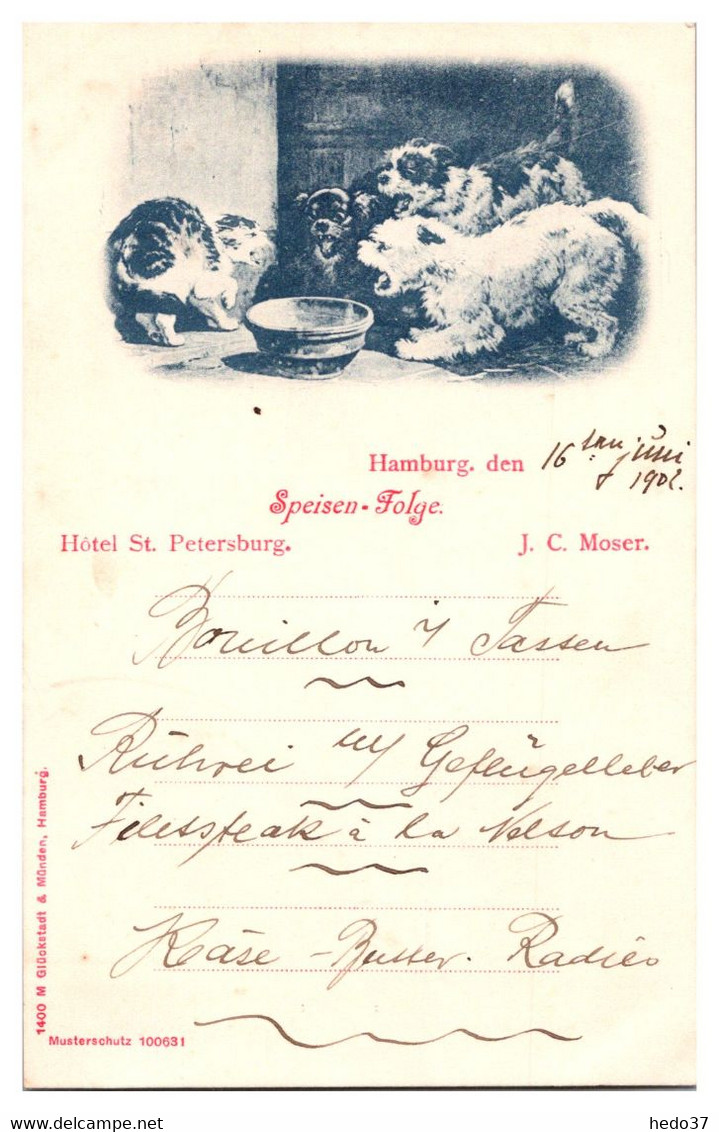 Hamburg, den 16ten Juni 1902.
Speisen-Folge.
Hôtel St. Petersburg. J. C. Moser.
Bouillon i/ Tassen
Rührei m/ Geflügelleber
Filetsteak à la Nelson
Käse - Butter. Radies
1400 M Glückstadt & Münden, Hamburg.
Musterschutz 100631
delcampe.net
hedo37